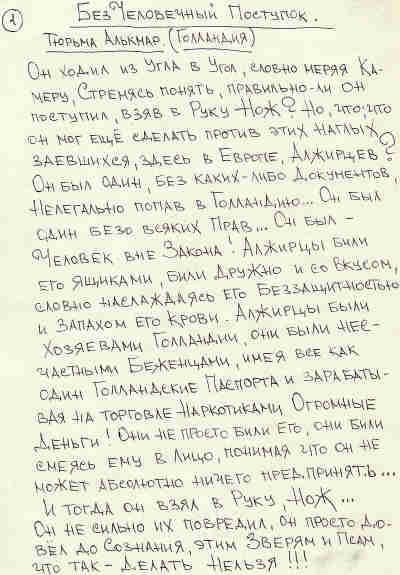 1
БезЧеловечный Поступок.
Тюрьма Алькмар. (Голландия)
Он ходил из угла в угол, словно меряя ка-
меру, стремясь понять, правильно-ли он
поступил, взяв в руку нож? Но, что-что
он мог ещё сделать против этих наглых
заевшихся, здесь в Европе, Алжирцев?
Он был один, без каких-либо документов,
нелегально попав в Голландию... Он был
один безо всяких прав... Он был -
человек вне закона! Алжирцы били
его ящиками, били дружно и со вкусом,
словно наслаждаясь его беззащитностью
и запахом его крови. Алжирцы были
хозяевами Голландии, они были нес-
частными беженцами, имея все как
один Голландские паспорта и зарабаты-
вая на торговле наркотиками огромные
деньги! Они не просто били его, они били
смеясь ему в лицо, понимая что он не
может абсолютно ничего предпринять...
И тогда он взял в руку, нож...
Он не сильно их повредил, он просто до-
вёл до сознания, этим зверям и псам,
что так - делать нельзя!!!